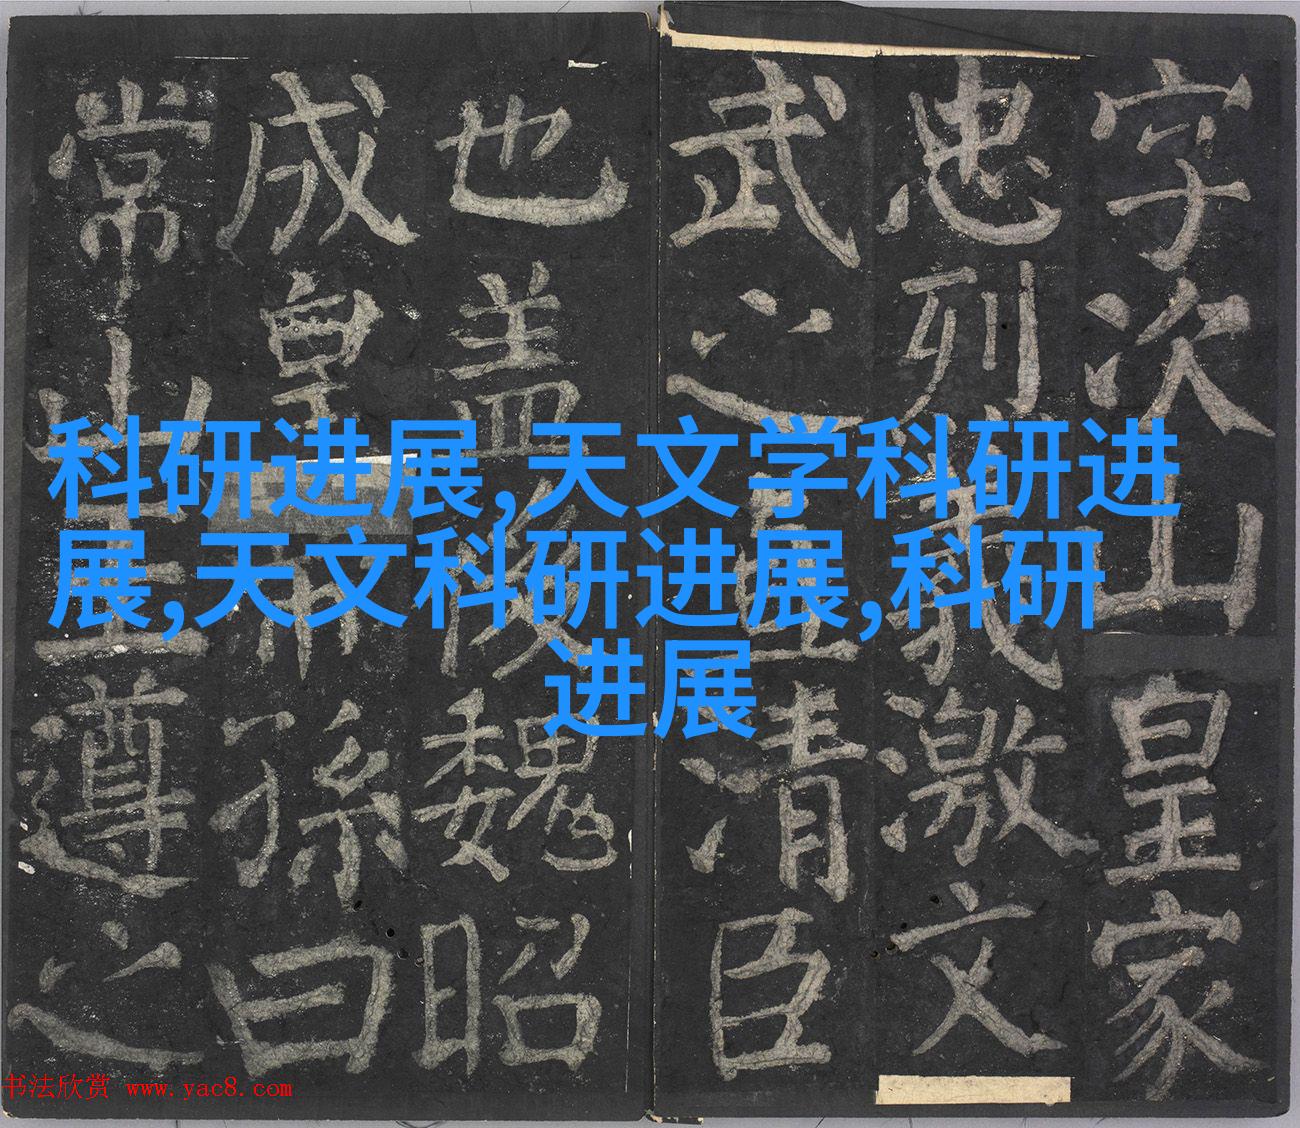 科研进展,天文学科研进
展,天文科研进展,科研
进展
字次山皇家
忠烈義激文
武之直清臣
也盖後魏昭
成皇帝孫曰
常山王遵之
书法欣赏 www.yac8.com